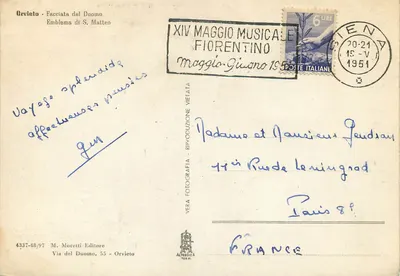 Orvieto - Facciata del Duomo
Emblema di S. Matteo
XIV MAGGIO MUSICALE
FIORENTINO
Maggio-Giugno 1951
6 LIRE
POSTE ITALIANE
SIENA
20-21
18-V
1951
Voyage splendide
affectueuses pensées
Madame et Monsieur Gendrau
11bis Rue de Leningrad
Paris 8e
FRANCE
VERA FOTOGRAFIA - RIPRODUZIONE VIETATA
4337-48/97 M. Moretti Editore
Via del Duomo, 55 - Orvieto